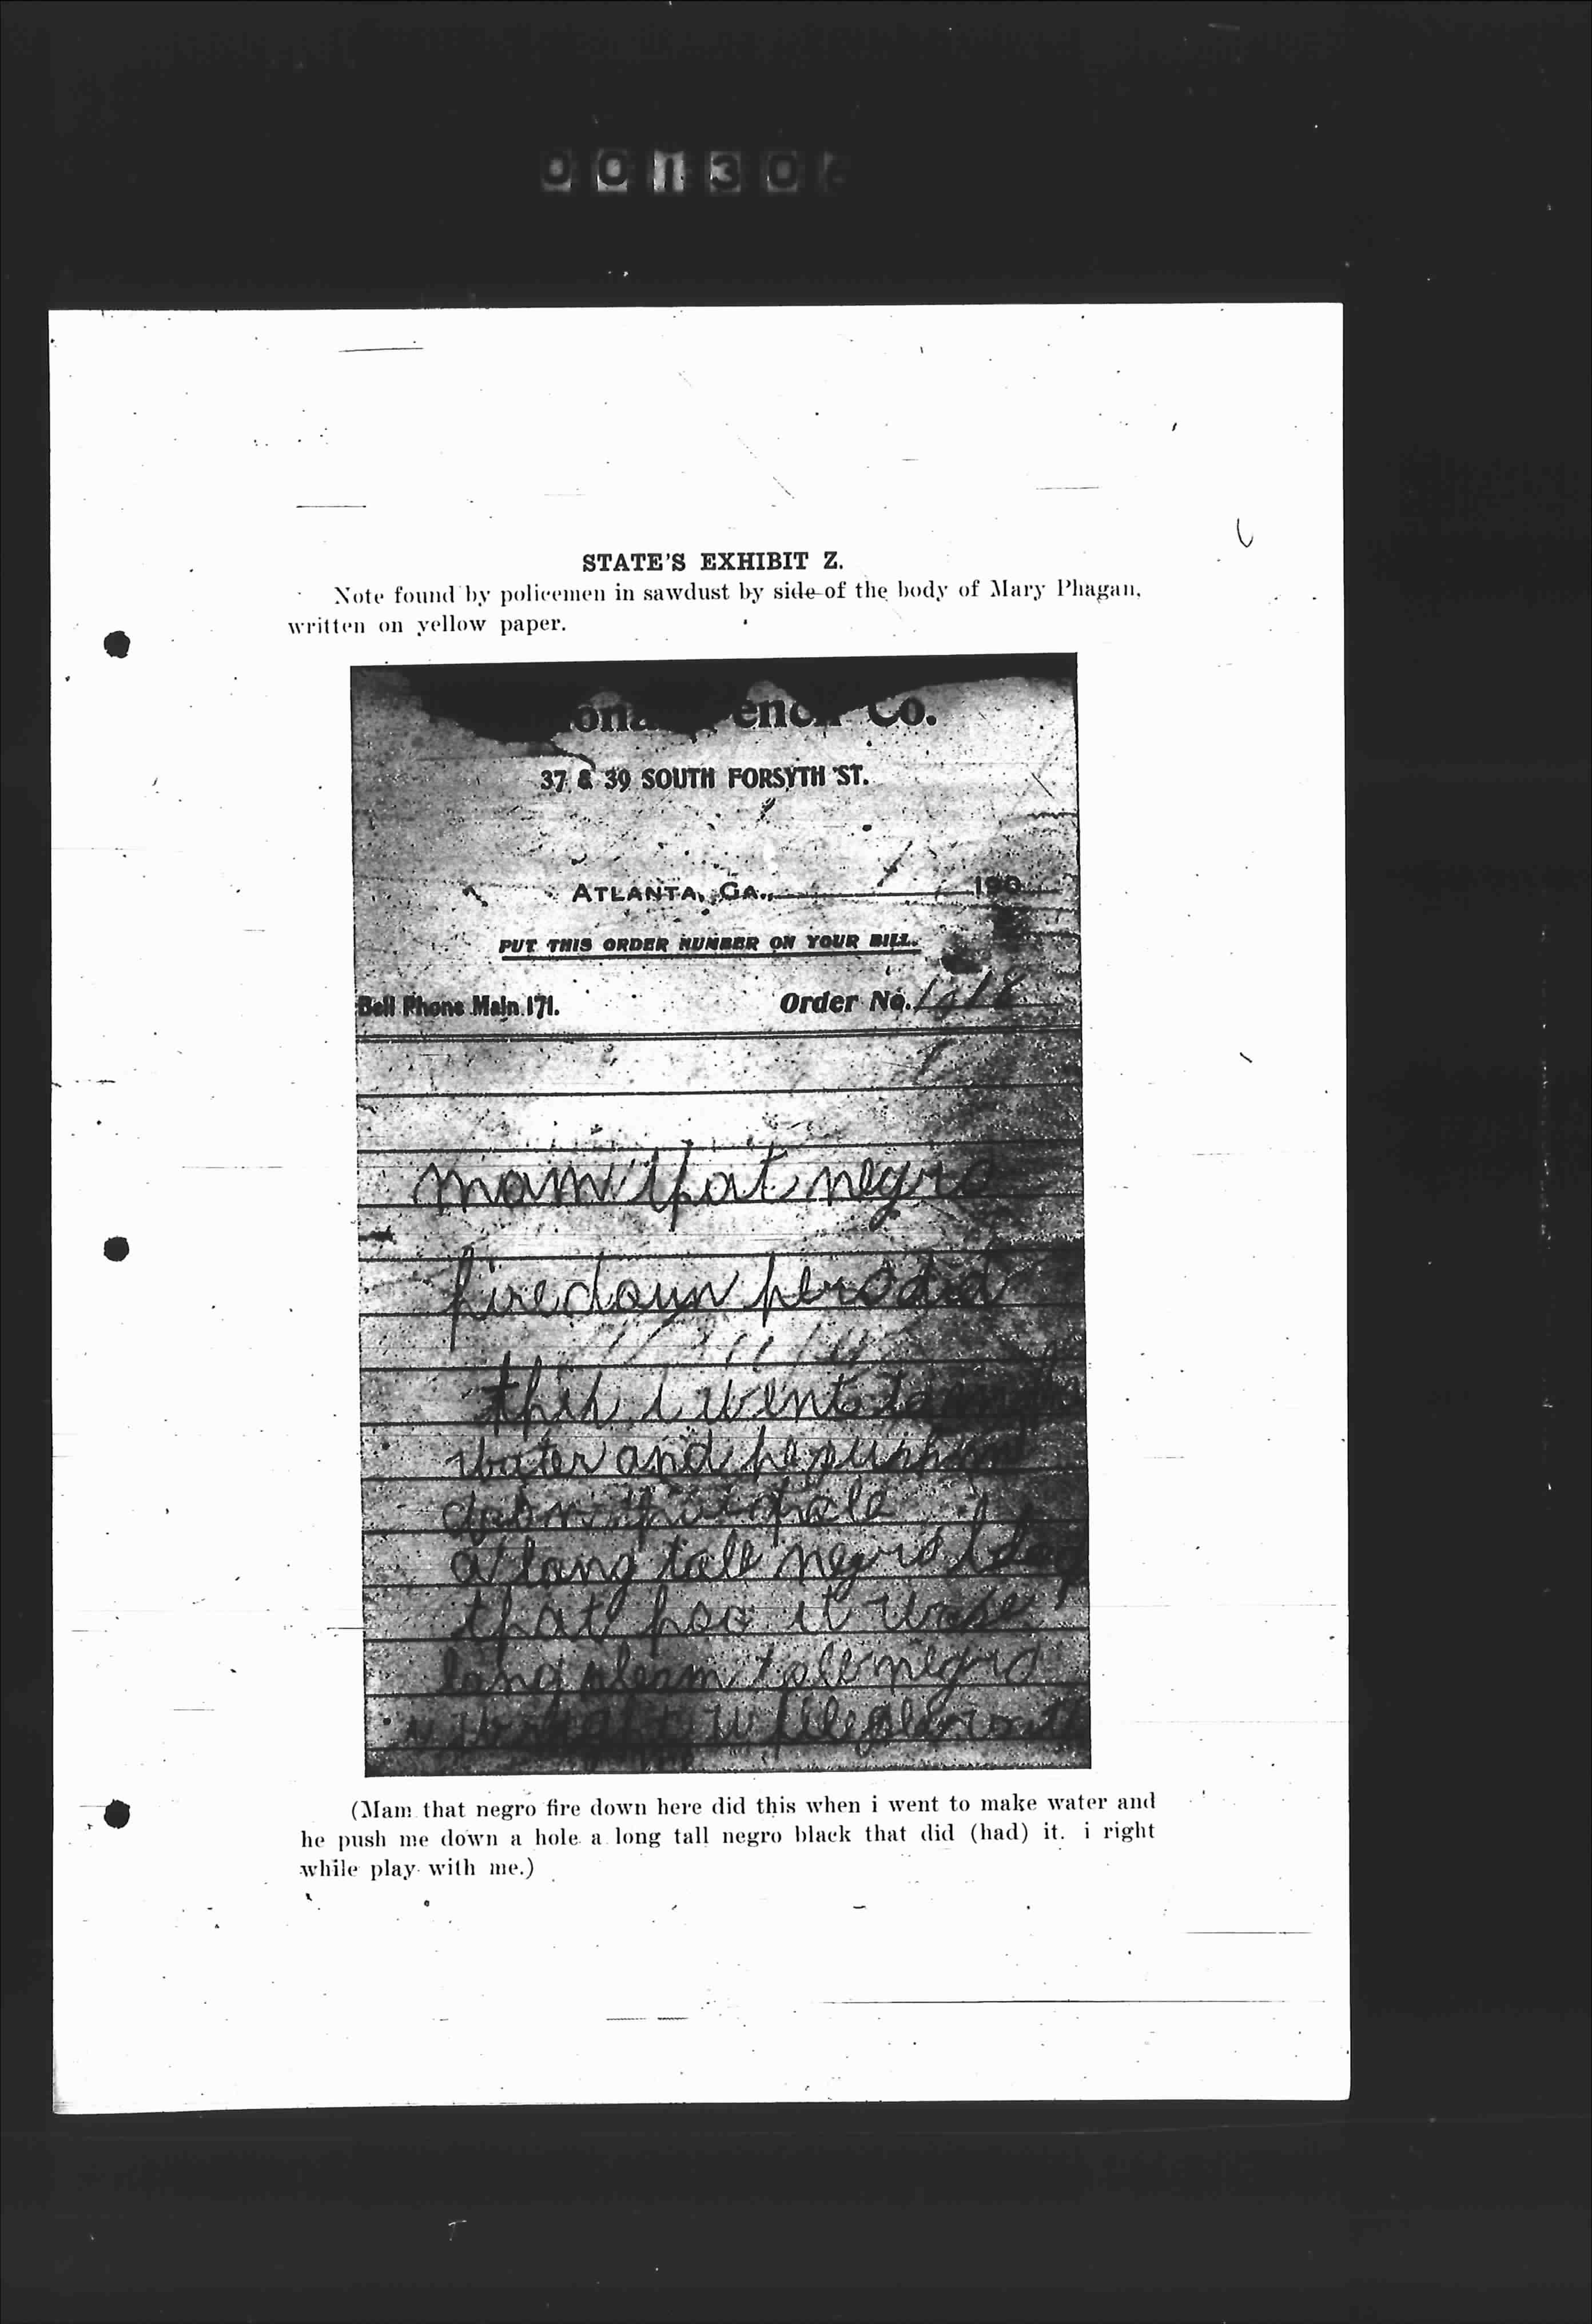 00130
STATE'S EXHIBIT Z.
Note found by policemen in sawdust by side of the body of Mary Phagan,
written on yellow paper.
Co.
37 & 39 SOUTH FORSYTH ST.
ATLANTA, GA., 190
PUT THIS ORDER NUMBER ON YOUR BILL.
Bell Phone Main 171. Order No. 1018
mam that negro
hire doun here did
this i went to make
water and he push me
doun that hole
a long tall negro black
that hoo it wase
long sleam tall negro
i wright while play with
(Mam that negro fire down here did this when i went to make water and
he push me down a hole a long tall negro black that did (had) it. i right
while play with me.)